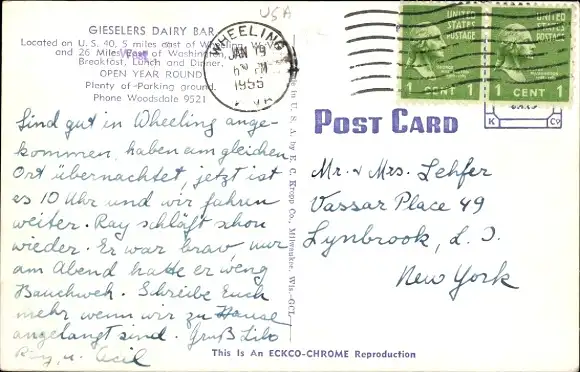 USA
GIESELERS DAIRY BAR
Located on U.S. 40, 5 miles east of
and 26 Miles West of Washington
Breakfast, Lunch and Dinner.
OPEN YEAR ROUND
Plenty of Parking ground.
Phone Woodsdale 9521
WHEELING
JAN 19
PM
1955
W. VA.
UNITED STATES POSTAGE
1 CENT 1
UNITED STATES POSTAGE
1 CENT 1
K Co
POST CARD
Sind gut in Wheeling ange-
kommen, haben am gleichen
Ort übernachtet, jetzt ist
es 10 Uhr und wir fahren
weiter. Ray schläft schon
wieder. Er war brav, nur
am Abend hatte er weng
Bauchweh. Schreibe Euch
mehr wenn wir zu Hause
angelangt sind. Gruß Lilo
Ray, u. Cecil
Mr. & Mrs. Lehfer
Vassar Place 49
Lynbrook, L. I.
New York
in U. S. A. by E. C. Kropp Co., Milwaukee, Wis.-GCL
This Is An ECKCO-CHROME Reproduction